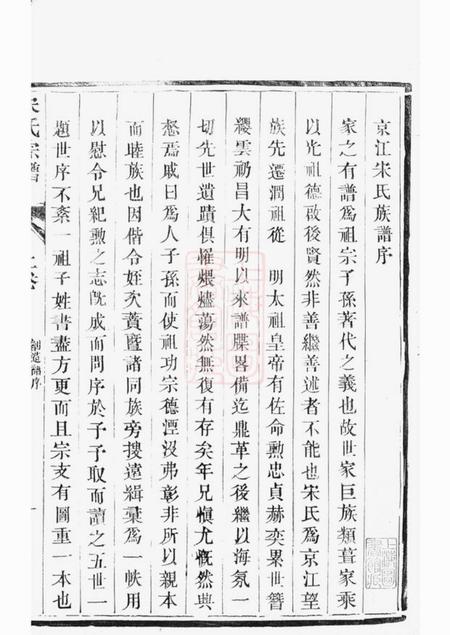 京江宋氏族譜序
家之有譜爲祖宗子孫著代之義也故世家巨族類葺家乘
以光祖德啟後賢然非善繼善述者不能也宋氏爲京江望
族先遷潤祖從 明太祖皇帝有佐命勲忠貞赫奕累世簪
纓雲礽昌大有明以來譜牒畧備迄鼎革之後繼以海氛一
切先世遺蹟俱罹煨燼蕩然無復有存矣年兄愼尤慨然興
愁焉戚曰爲人子孫而使祖功宗德湮沒弗彰非所以親本
而睦族也因偕令姪次黃曁諸同族旁搜遠緝彙爲一帙用
以慰令兄紀勲之志旣成而問序於予予取而讀之五世一
遷世序不紊一祖子姓書盡方更而且宗支有圖重一本也
宋氏宗譜
上卷
創造譜序
一